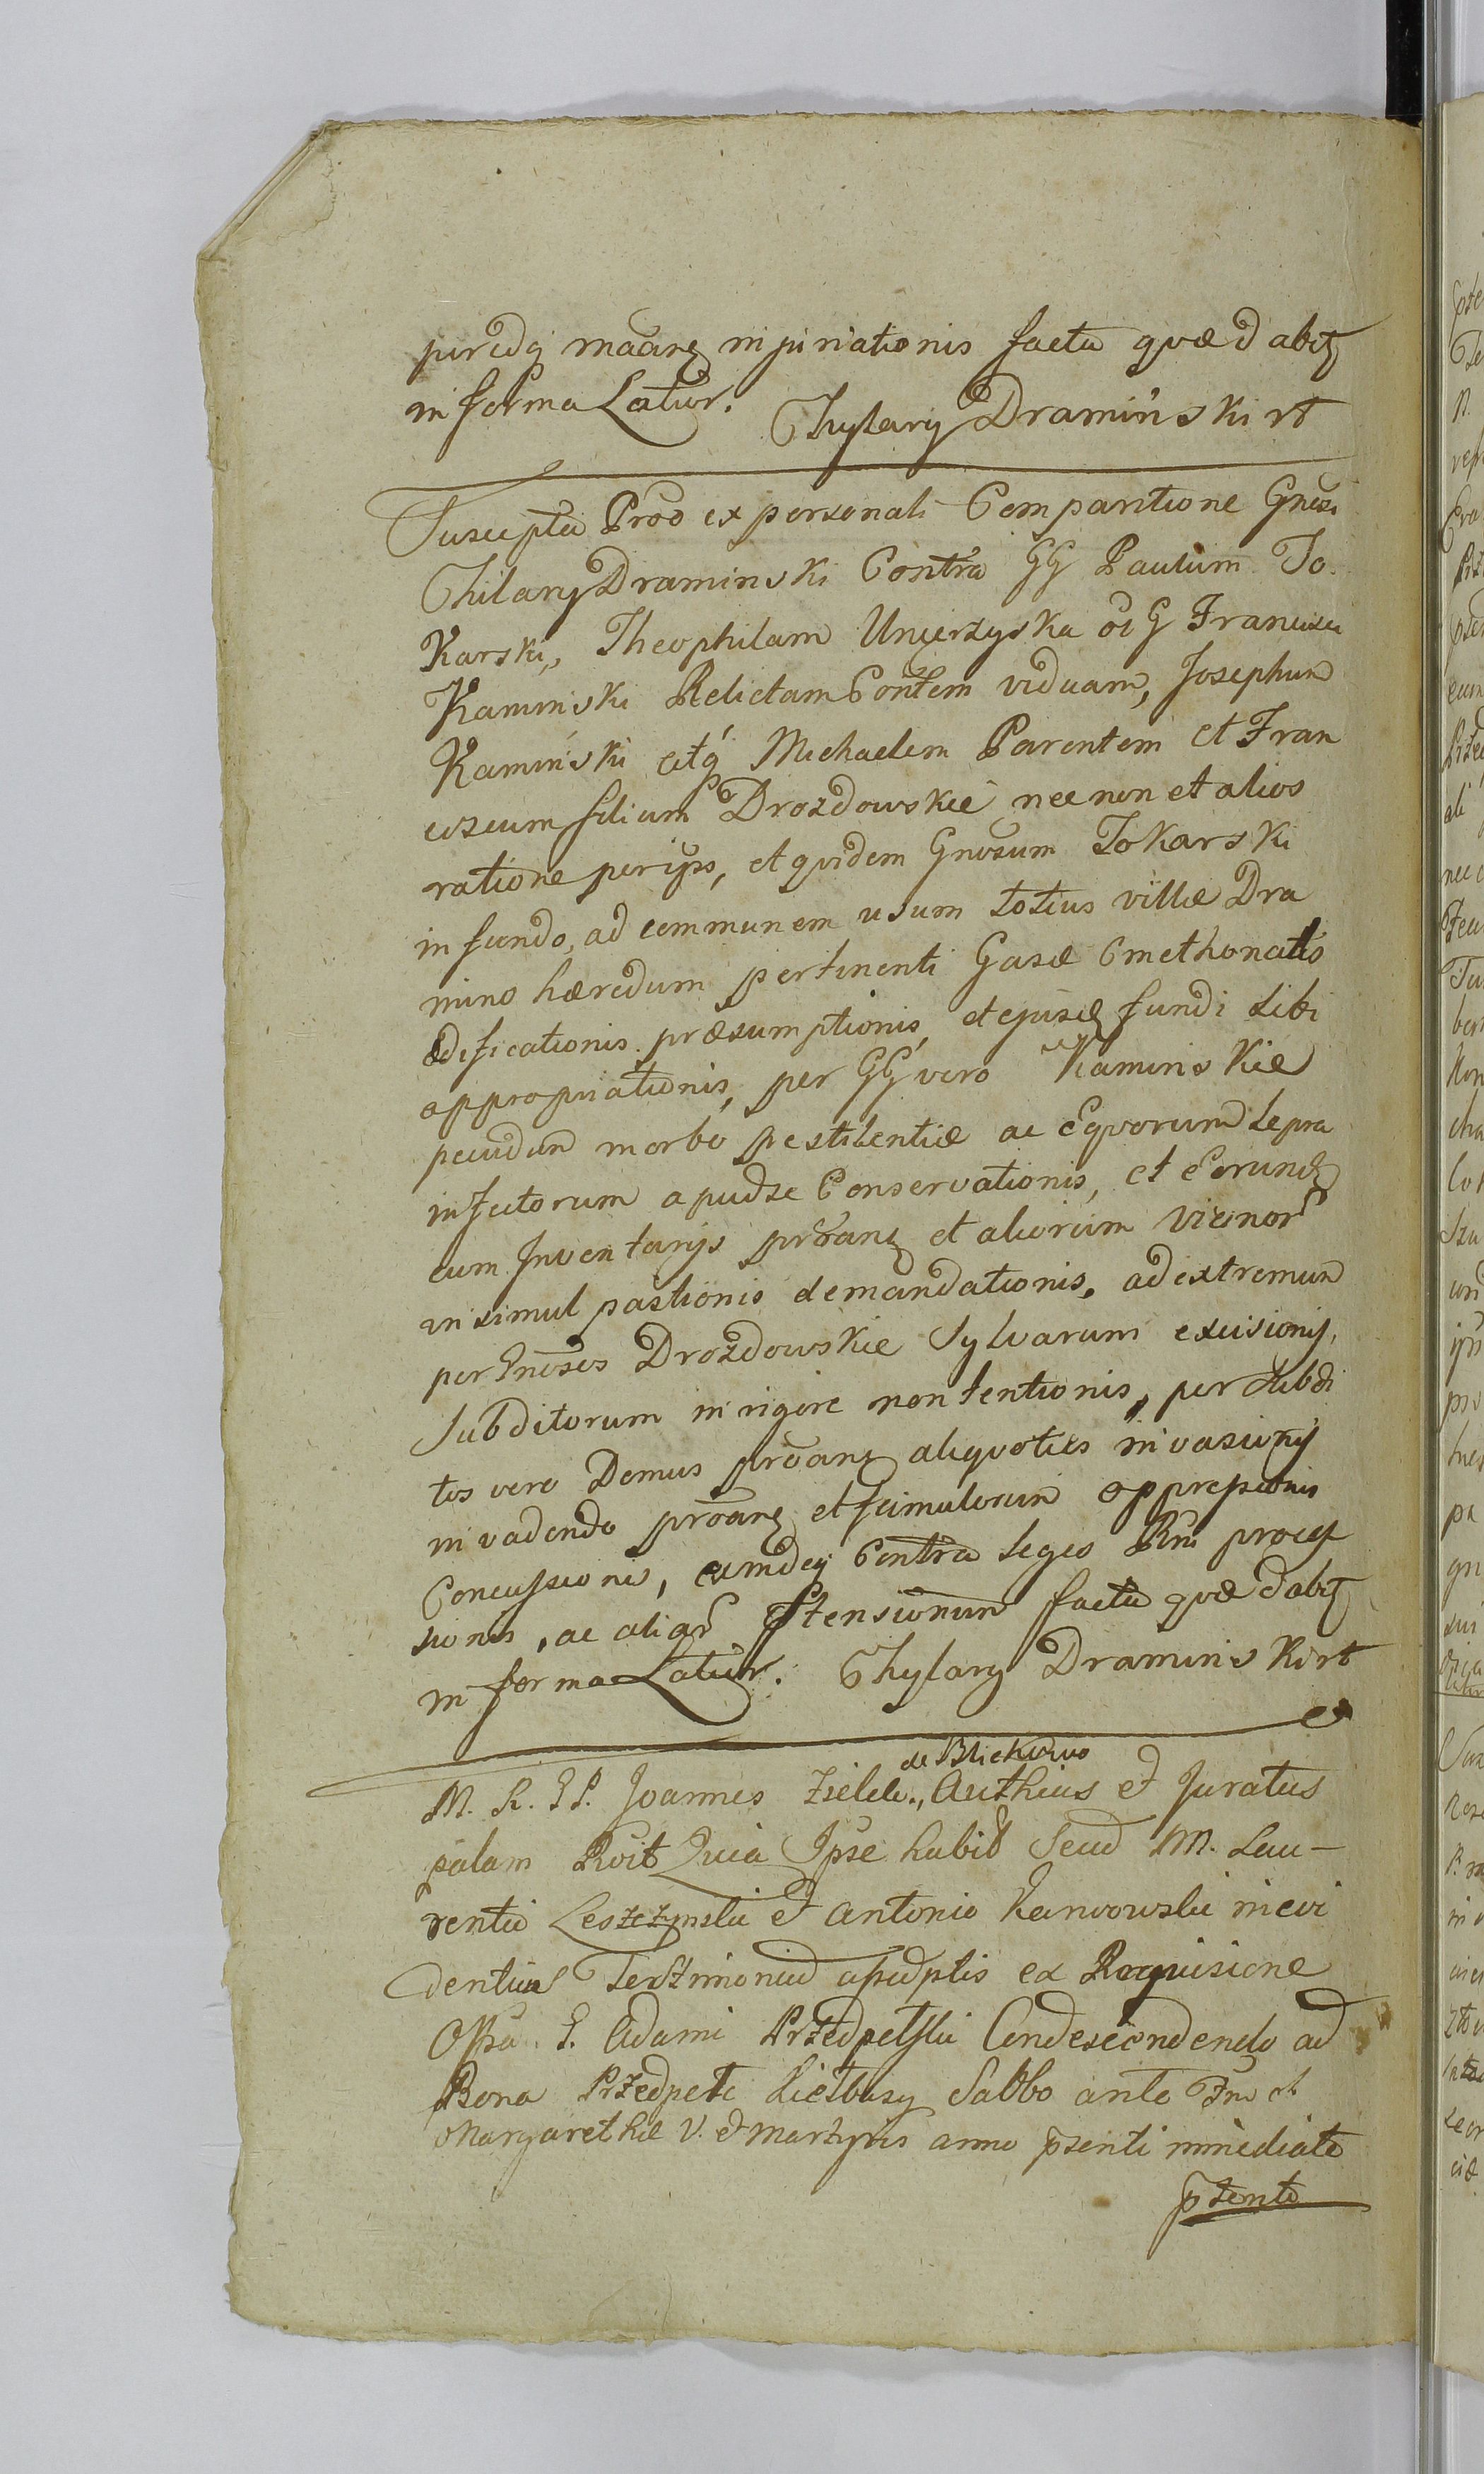 in forma Latur. Chylary Draminski rt
Suscepta Prõo ex personali Comparitione Gnosi
Chilary Draminski Contra GG Paulum To
Karski, Theophilam Unierzyska oi G Francisci
Kaminski Relictam Contem viduam, Josephum
Kaminski atq Michaelem Parentem et Fran
ciscum filium Drozdowskie nec non et alios
ratione per ipss, et quidem Gnosum Tokarski
in fundo, ad communem usum totius villæ Dra
mino hæredum pertinenti Gasæ Cmethonalis
ædificationis præsumptionis, et ejusd fundi sibi
appropriationis, per GG vero Kaminskie
pecudum morbo pestilentiæ ac Equorum lepra
infectorum apud se Conservationis, et Eorund
cum Inventarijs et aliorum Vicinor
insimul pastionis demandationis, ad extremum
per Gnosos Drozdowskie Sylvarum excisionis,
Subditorum in rigore non tentionis, per Subdi
tos vero Domus aliquoties invasionis
invadendo et famulorum oppressionis
Concussionis, Contra leges Rni proces
sionis, ac aliar Ptensionum facta quæ dabit
in forma Latur. Chylary Draminski rt
de Bliekowo
M. R. Joannes Zielel., Authicus et Juratus
palam Rvit Quia Ipse habit Secud M. Lau-
rentio Leszczynski et Antonio Karwowski in evi
dentius Testimoniud ex Requisicione
G. Adami Przedpetski Condescendendo ad
Bona Przedpete Kietbasy Sabbo ante
Margarethæ V. et Martyris anno psenti immediate
psente